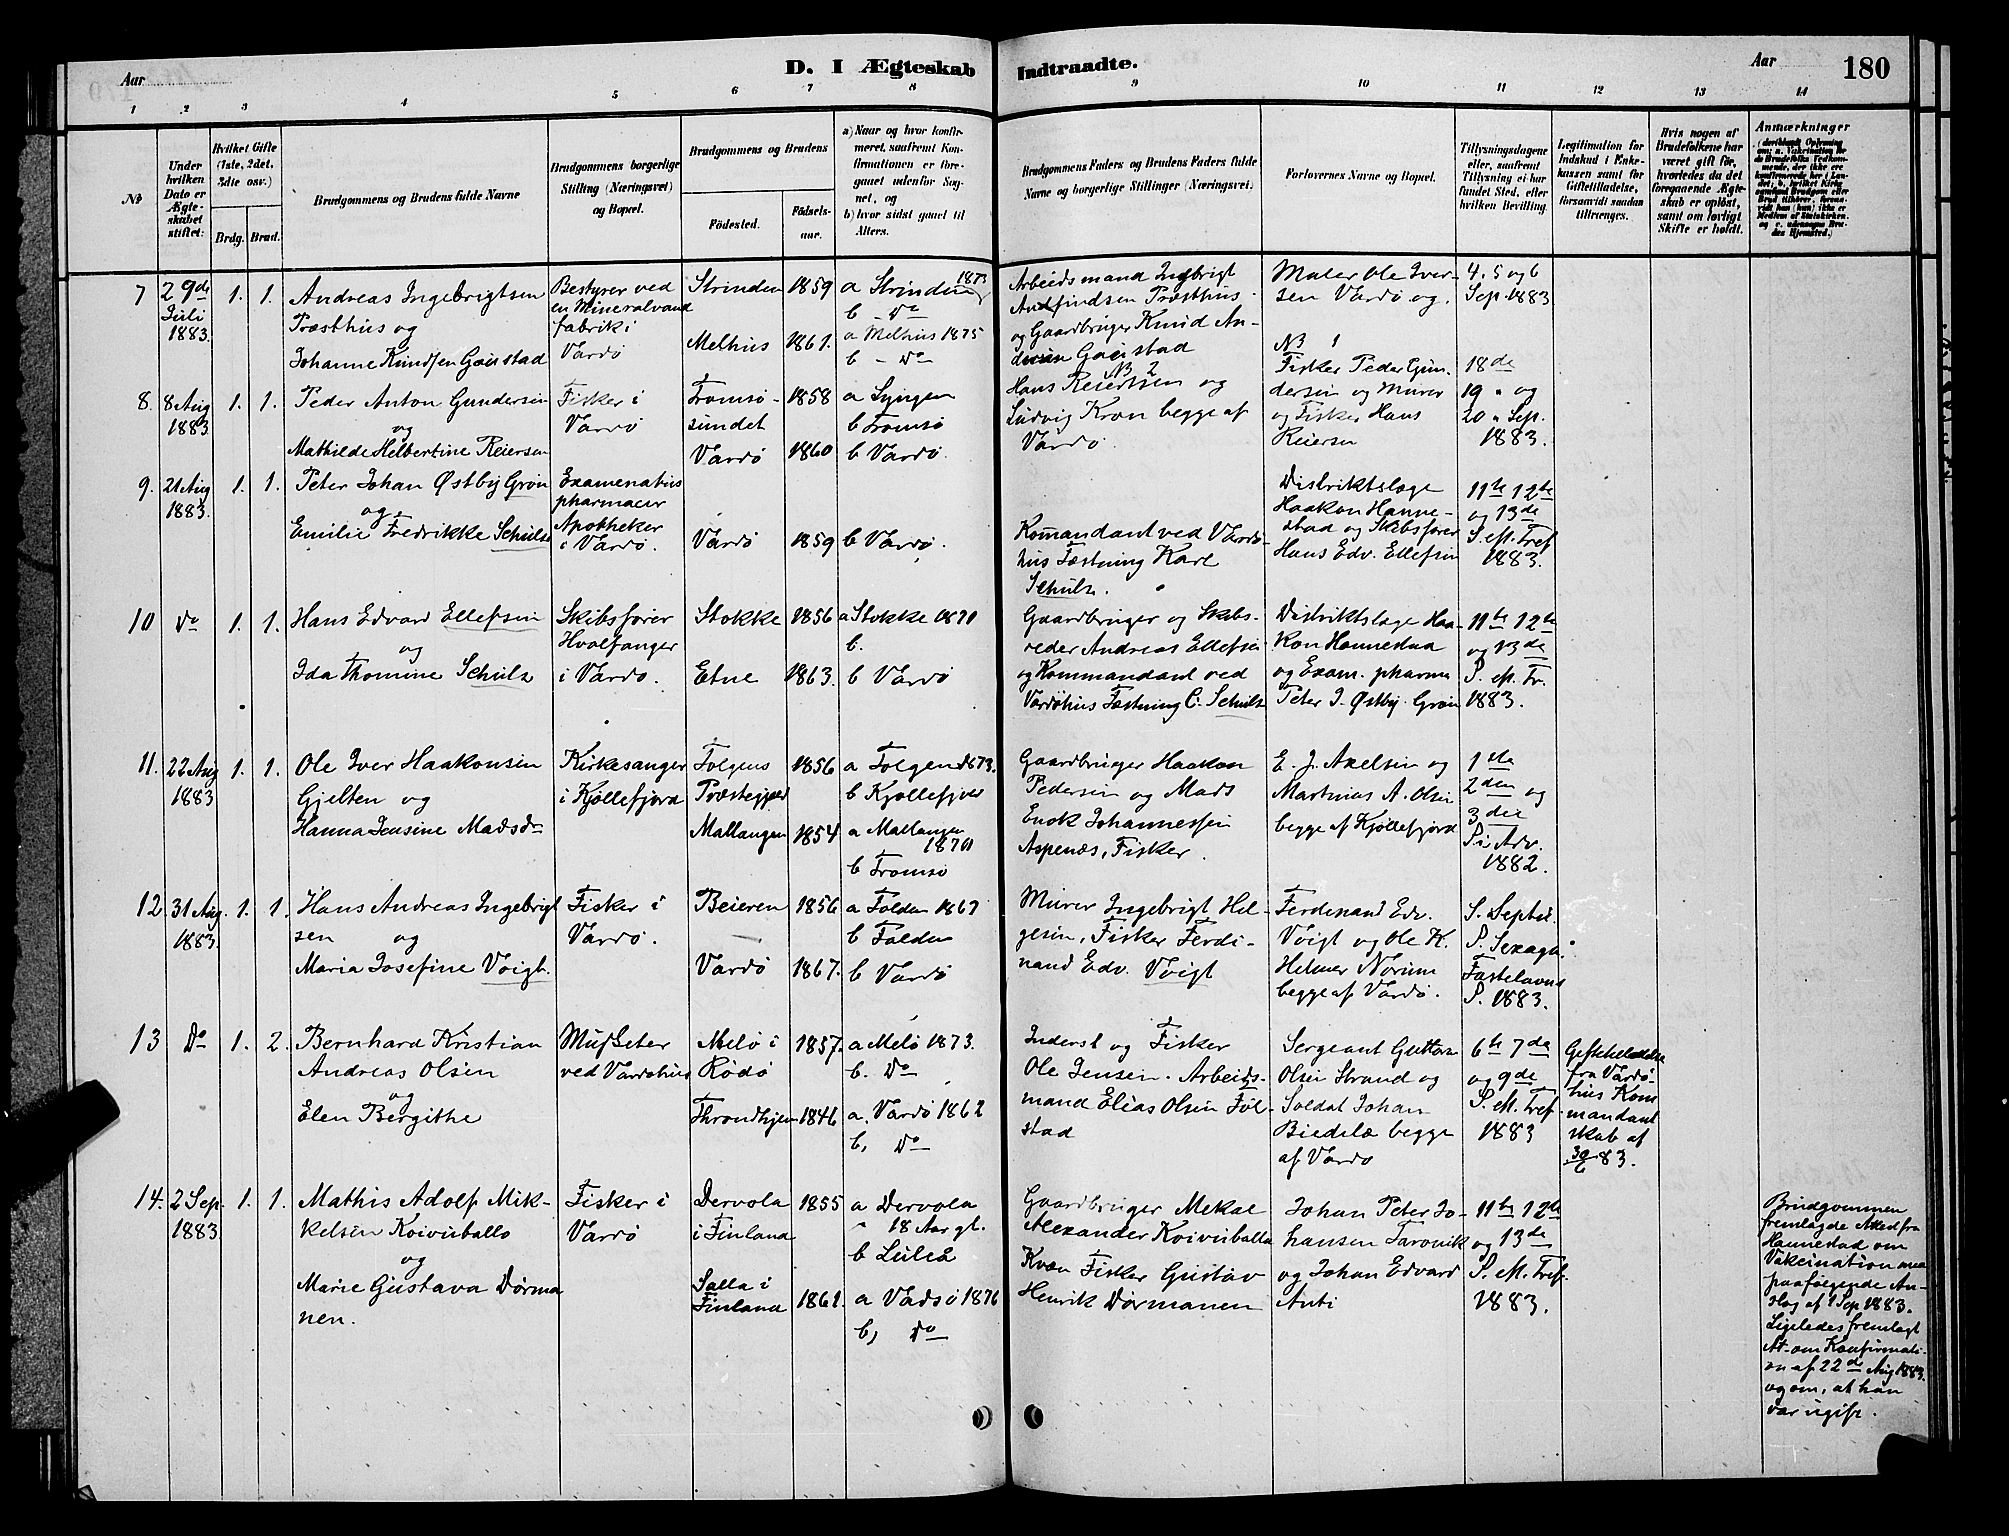 Aar
D. I Ægteskab Indtraadte.
Aar 180
1 2 3 4 5 6 7 8 9 10 11 12 13 14
№
Under hvilken Dato er Ægteskabet stiftet:
Hvilket Gifte (1ste, 2det, 3die osv.)
Brdg. Brud.
Brudgommens og Brudens fulde Navne
Brudgommens borgerlige Stilling (Næringsvei) og Bopæl.
Brudgommens og Brudens
Fødested.
Fødselsaar.
a) Naar og hvor konfirmeret, saafremt Konfirmationen er foregaaet udenfor Sognet, og
b) hvor sidst gaaet til Alters.
Brudgommens Faders og Brudens Faders fulde Navne og borgerlige Stillinger (Næringsvei)
Forlovernes Navne og Bopæl.
Tillysningsdagene eller, saafremt Tillysning ei har fundet Sted, efter hvilken Bevilling.
Legitimation for Indskud i Enkekassen samt for Giftetilladelse, forsaavidt saadan tiltrænges.
Hvis nogen af Brudefolkene har været gift før, hvorledes da det foregaaende Ægteskab er opløst, samt om lovligt Skifte er holdt.
Anmærkninger
7 29de Juli 1883. 1. 1.
Andreas Ingebrigtsen
Præsthus og
Johanne Knudsen Gaustad
Bestyrer ved
en Mineralvand
fabrik i
Vardø
Strinden 1859 a Strinden 1873
b - Do
Melhus 1861. a Melhus 1875
b - Do
Arbeidsmand Ingbrigt
Andfindsen Præsthus
og Gaardbruger Knud An-
dersen Gaustad
Maler Ole Iver-
sen Vardø og.
№ 1
4. 5 og 6
Sep. 1883.
8. 8 Aug 1883 1. 1.
Peder Anton Gundersen
og
Mathilde Helbertine Reiersen
Fisker i
Vardø
Tromsø-
sundet 1858
a Lyngen
b Tromsø
Vardø 1860 b Vardø.
№ 2
Hans Reiersen og
Ludvig Kron begge af
Vardø.
Fisker Peder Gun-
dersen og Murer
og Fisker Hans
Reiersen
18de
19 " og
20 " Sep.
1883.
9. 21 Aug 1883. 1. 1.
Peter Johan Østby Grøn
og
Emilie Fredrikke Schulz
Examenatus
pharmacier
Apotheker
i Vardø.
Vardø 1859 b Vardø.
Kommandant ved Vardø-
hus Fæstning Karl
Schulz.
Distriktslæge
Haakon Hanne-
stad og Skibsfører
Hans Edv. Ellefsen
11te 12te
og 13de
S. eft. Tref.
1883.
10 Do 1. 1.
Hans Edvard Ellefsen
og
Ida Thomine Schulz
Skibsfører
Hvalfanger
i Vardø.
Stokke 1856 a Stokke 1870
b.
Etne 1863. b Vardø
Gaardbruger og Skibs-
reder Andreas Ellefsen
og Kommandant ved
Vardøhus Fæstning C. Schulz
Distriktslæge Haa-
kon Hannestad
og Exam. pharma
Peter J. Østby Grøn
11te 12te
og 13de
S. eft. Tr.
1883.
11. 22 Aug 1883 1. 1.
Ole Iver Haakonsen
Gjelten og
Hanna Jensine Madsdr
Kirkesanger
i Kjøllefjord
Tolgens
Præstegjæld 1856
a Tolgen 1873.
b Kjøllefjord
Mallangen 1854 a Mallangen
1870
b Tromsø
Gaardbruger Haakon
Pedersen og Mads
Enok Johannessen
Aspenæs, Fisker.
E. J. Axelsen og
Martinias A. Olsen
begge af Kjøllefjord
1ste
2den og
3die
S i Adv.
1882.
12 31 Aug. 1883. 1. 1.
Hans Andreas Ingebrigt
sen og
Maria Josefine Voigt.
Fisker i
Vardø.
Beieren 1856 a Folden 1867
b Folden
Vardø 1867. b Vardø
Murer Ingebrigt Hel-
gesen, Fisker Ferdi-
nand Edv. Voigt
Ferdenand Edv.
Voigt og Ole K.
Helmer Norum
begge af Vardø.
S. Septu.
S. Sexag.
Fastelavns
S. 1883.
13 Do 1. 2.
Bernhard Kristian
Andreas Olsen
og
Elen Bergithe
Musketer
ved Vardøhus
Melø i
Rødø 1857.
a Melø 1873.
b. Do
Throndhjem 1846 a. Vardø 1862
b, Do
Inderst og Fisker
Ole Jensen. Arbeids-
mand Elias Olsen Føl-
stad
Sergeant Guttorm
Olsen Strand og
Soldat Johan
begge
af Vardø
6te 7de
og 9de
S. eft. Tref.
1883
Giftetilladelse
fra Vardø-
hus Kom-
mandant
skab af
30/6 83.
14. 2 Sep. 1883 1. 1.
Mathis Adolf Mik-
kelsen Koivuballo
og
Marie Gustava Dørma
nen.
Fisker i
Vardø
Dervola
i Finland 1855
a Dervola
18 Aar gl.
b Luleå
Salla i
Finland 1861. a Vadsø 1876
b, Do
Gaardbruger Mekal
Alexander Koivuballa
Kvæn Fisker Gustav
Henrik Dørmanen
Johan Peter Jo-
hansen Tarovik
og Johan Edvard
Anti
11te 12te
og 13de
S. eft. Tref.
1883.
Brudgommen
fremlagde Atted fra
Hannestad om
Vakcination med
paafølgende An-
slag af 1 Sep 1883.
Ligeledes fremlagt
At. om Konfirmati-
on af 22de Aug 1883.
og om, at han
var ugift.